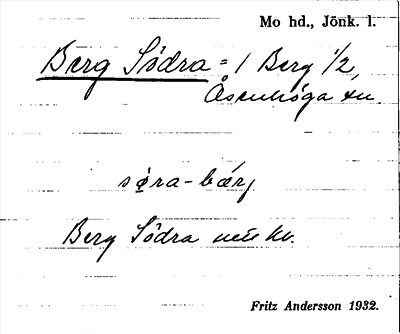 Mo hd., Jönk. l.
Berg Södra = 1 Berg 1/2,
Åsenhöga sn.
Berg Södra
Fritz Andersson 1932.